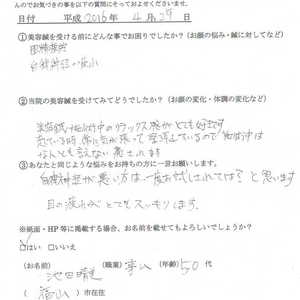 んのでお気づきの事を以下の質問にそっておよせくださいませ。
日付　平成 2016 年 4 月 29 日
①美容鍼を受ける前にどんな事でお困りでしたか？（お顔の悩み・鍼に対してなど）
眼精疲労
自律神経の
②当院の美容鍼を受けてみてどうでしたか？（お顔の変化・体調の変化など）
美容鍼 施術中のリラックス感がとても好きです
施術中は
なんとも言えない癒されます
③あなたと同じような悩みをお持ちの方に一言お願いします。
自律神経が悪い方は一度お試しされては？と思います
目の疲れがとてもスッキリします。
※紙面・HP等に掲載する場合、お名前を載せてもよろしいでしょうか？
□はい □いいえ
（お名前）　（職業）　（年齢）50 代
池田
（福山）市在住